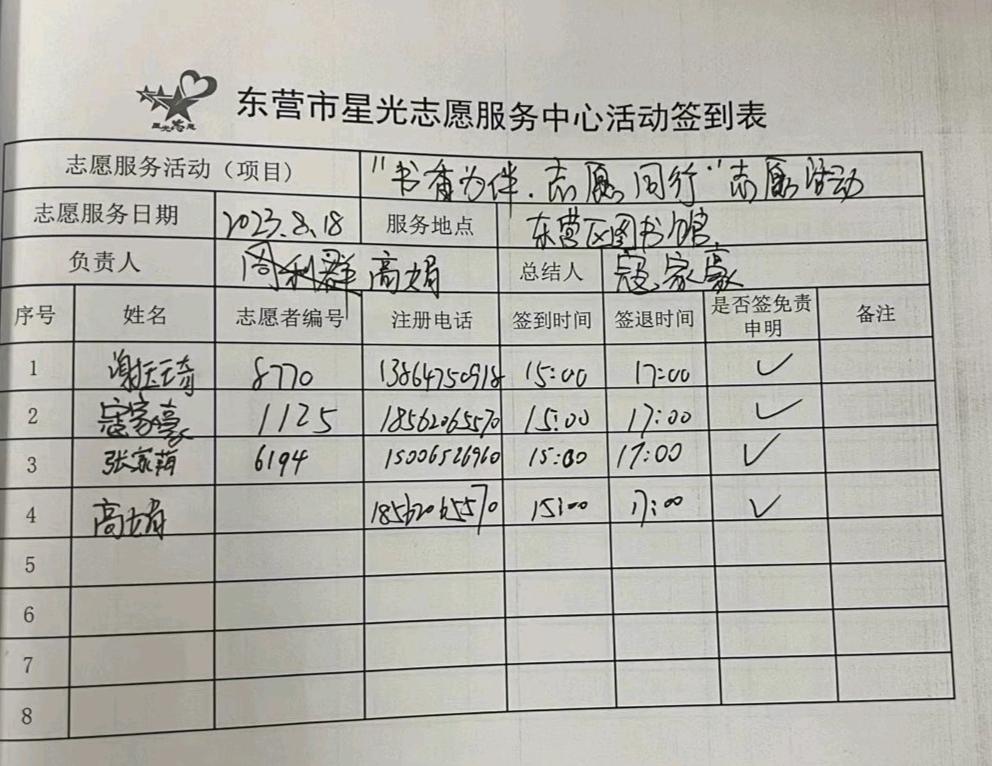 星光志愿
东营市星光志愿服务中心活动签到表
志愿服务活动（项目） "书香为伴.志愿同行"志愿活动
志愿服务日期 2023.8.18 服务地点 东营区图书馆
负责人 周利群 高娟 总结人 寇家豪
序号 姓名 志愿者编号 注册电话 签到时间 签退时间 是否签免责申明 备注
1 谢玉琦 8770 13864750918 15:00 17:00 ✓
2 寇家豪 1125 18562065570 15:00 17:00 ✓
3 张家萌 6194 15006526960 15:00 17:00 ✓
4 高娟 18562065570 15:00 17:00 ✓
5
6
7
8